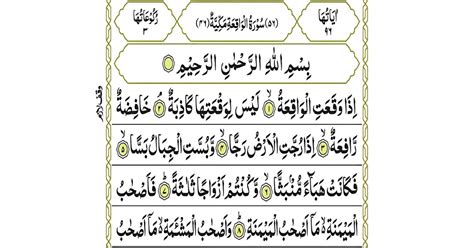 اٰيَاتُهَا ٩٦
(٥٦) سُوْرَةُ الْوَاقِعَةِ مَكِّيَّةٌ (٤٦)
رُكُوْعَاتُهَا ٣
بِسْمِ اللّٰهِ الرَّحْمٰنِ الرَّحِيْمِ
وقف لازم
اِذَا وَقَعَتِ الْوَاقِعَةُ ۙ﴿١﴾ لَيْسَ لِوَقْعَتِهَا كَاذِبَةٌ ۘ﴿٢﴾ خَافِضَةٌ
رَّافِعَةٌ ۙ﴿٣﴾ اِذَا رُجَّتِ الْاَرْضُ رَجًّا ۙ﴿٤﴾ وَّبُسَّتِ الْجِبَالُ بَسًّا ۙ﴿٥﴾
فَكَانَتْ هَبَآءً مُّنْۢبَثًّا ۙ﴿٦﴾ وَّكُنْتُمْ اَزْوَاجًا ثَلٰثَةً ؕ﴿٧﴾ فَاَصْحٰبُ
الْمَيْمَنَةِ ۙ۬ مَاۤ اَصْحٰبُ الْمَيْمَنَةِ ؕ﴿٨﴾ وَاَصْحٰبُ الْمَشْـَٔمَةِ ۙ۬ مَاۤ اَصْحٰبُ